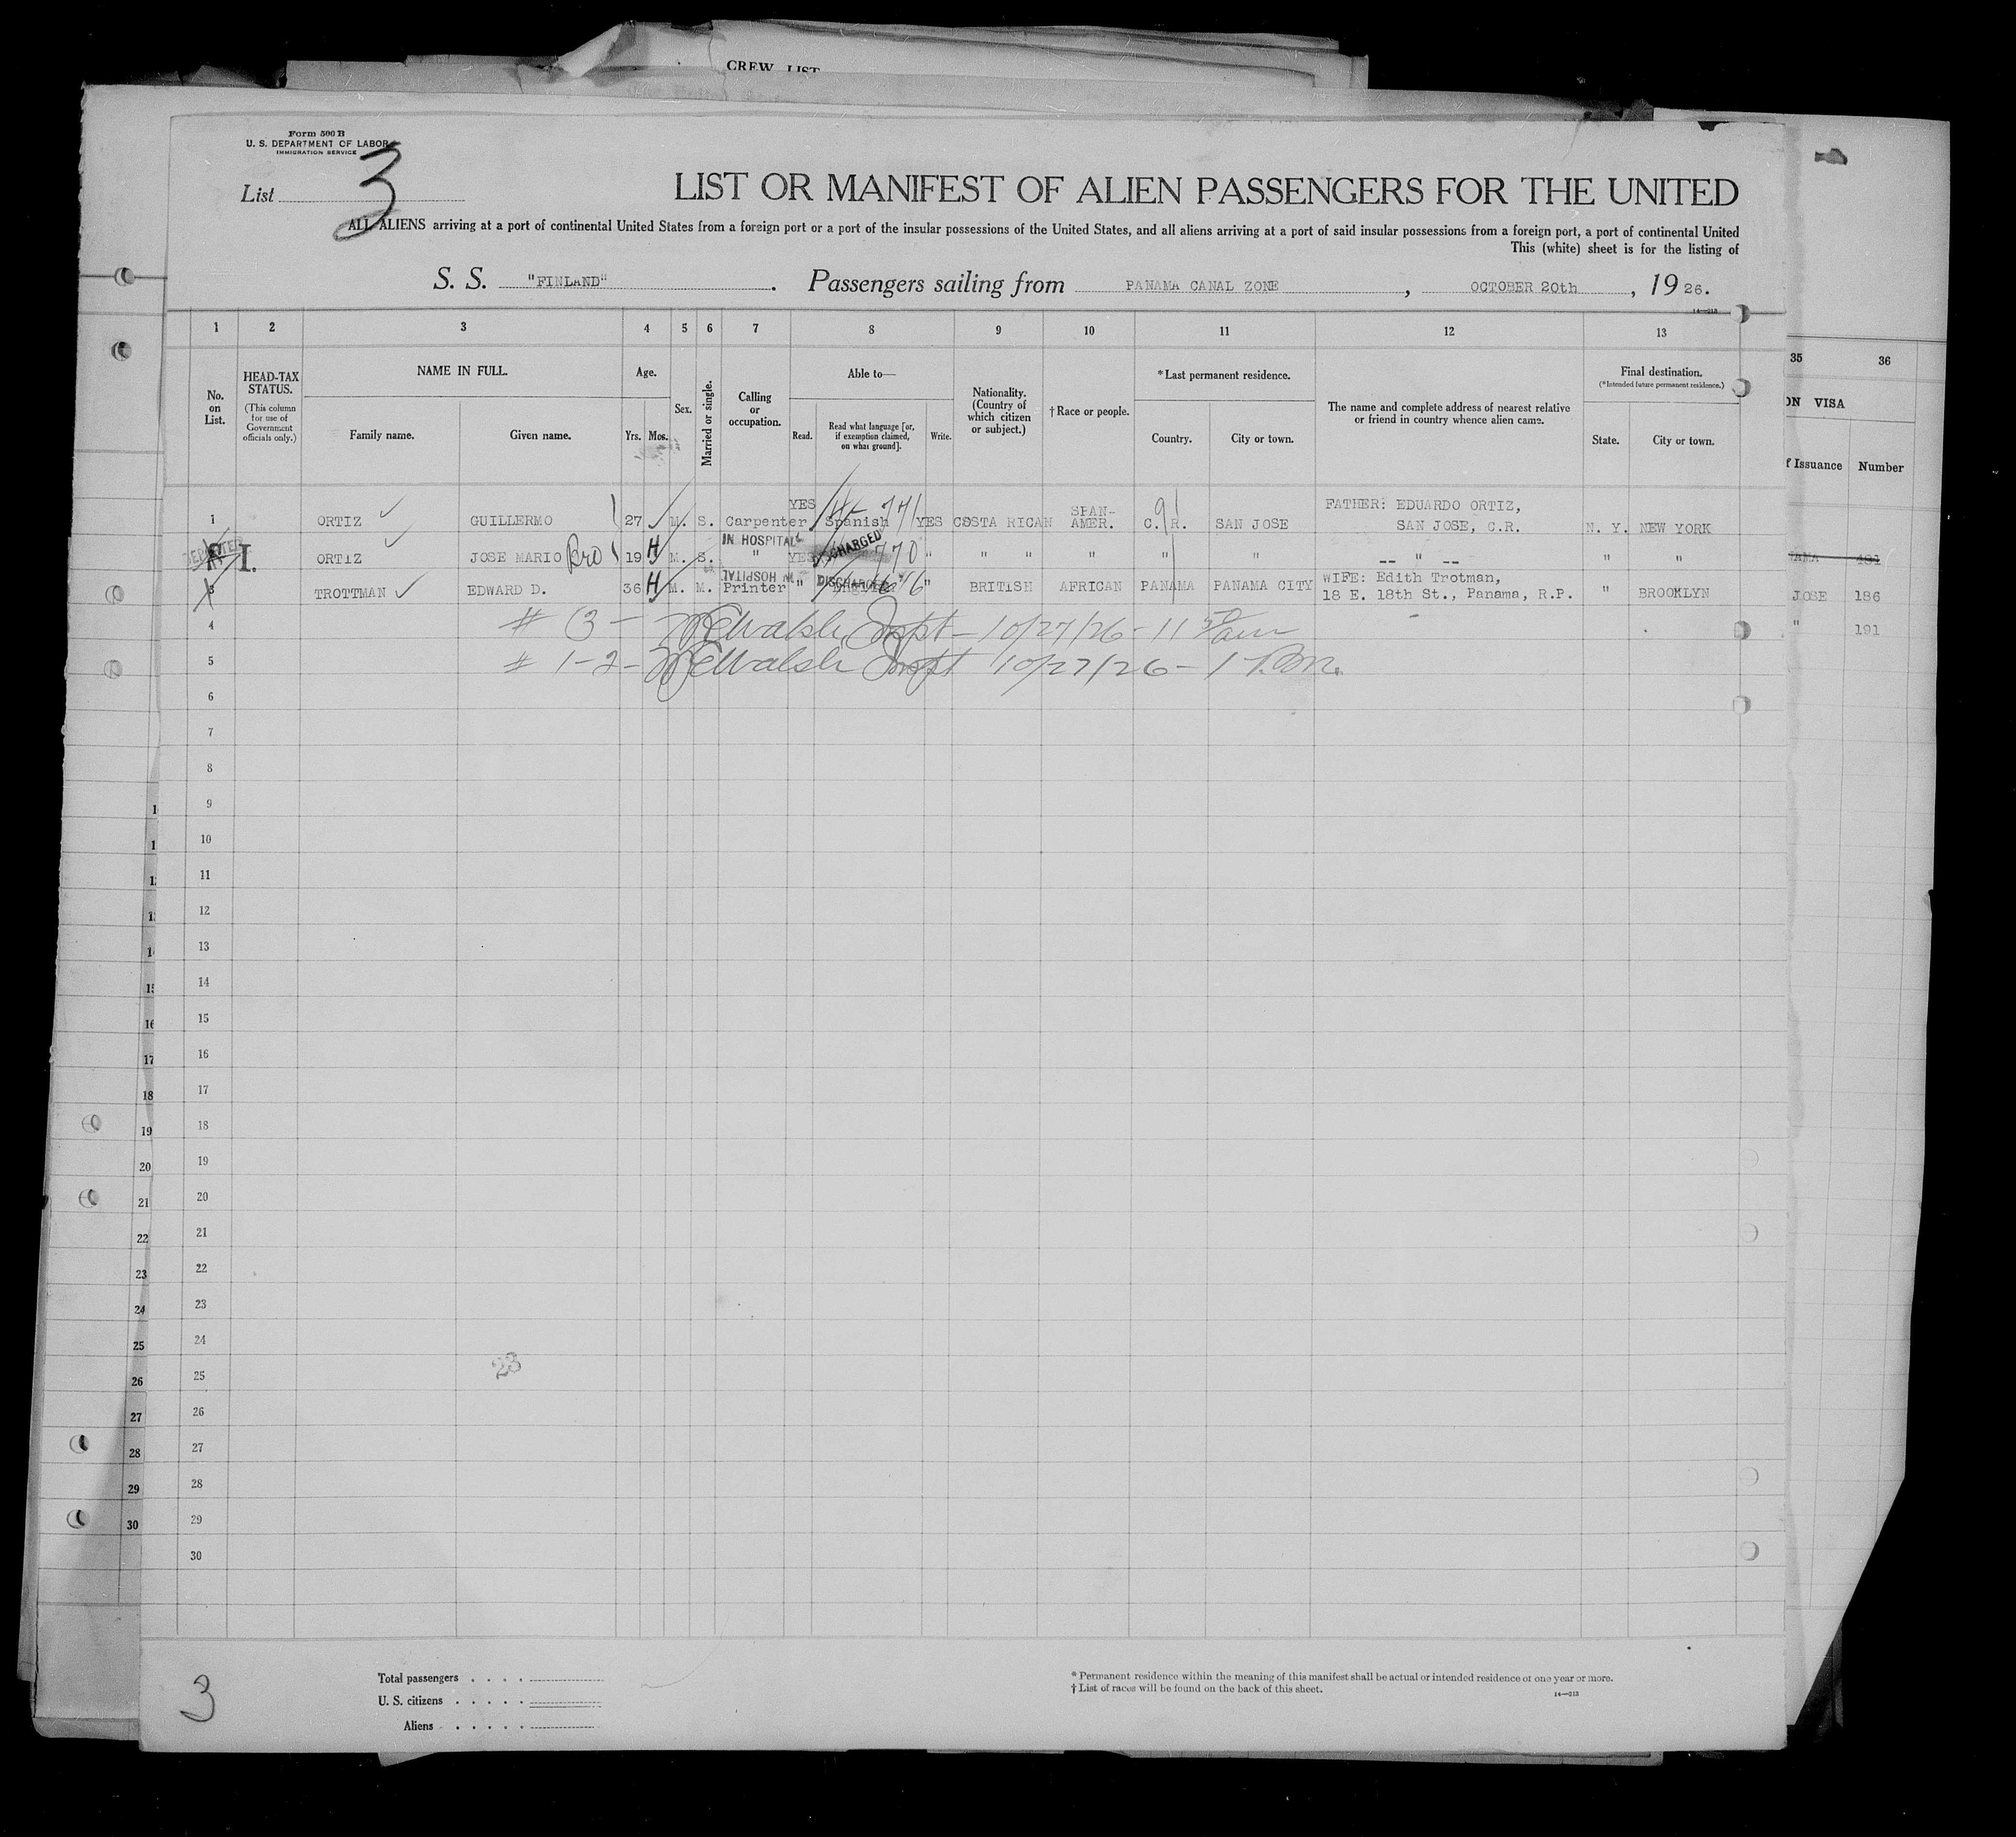 CREW LIST
Form 500 B
U. S. DEPARTMENT OF LABOR
IMMIGRATION SERVICE
List 3
LIST OR MANIFEST OF ALIEN PASSENGERS FOR THE UNITED
ALL ALIENS arriving at a port of continental United States from a foreign port or a port of the insular possessions of the United States, and all aliens arriving at a port of said insular possessions from a foreign port, a port of continental United
This (white) sheet is for the listing of
S. S. "FINLAND". Passengers sailing from PANAMA CANAL ZONE, OCTOBER 20th, 1926.
14—213
1 2 3 4 5 6 7 8 9 10 11 12 13
No. on List.
HEAD-TAX STATUS.
(This column for use of Government officials only.)
NAME IN FULL.
Family name.
Given name.
Age.
Yrs. Mos.
Sex.
Married or single.
Calling or occupation.
Able to—
Read.
Read what language [or, if exemption claimed, on what ground].
Write.
Nationality. (Country of which citizen or subject.)
† Race or people.
* Last permanent residence.
Country.
City or town.
The name and complete address of nearest relative or friend in country whence alien came.
Final destination.
(*Intended future permanent residence.)
State.
City or town.
35 36
ON VISA
f Issuance Number
1 ORTIZ GUILLERMO 27 M. S. Carpenter YES Spanish YES COSTA RICAN SPAN-AMER. C. R. SAN JOSE FATHER: EDUARDO ORTIZ, SAN JOSE, C.R. N. Y. NEW YORK
I. ORTIZ JOSE MARIO Bro 19 H M. S. IN HOSPITAL " YES DISCHARGED 770 " " " " " " -- " -- " "
3 TROTTMAN EDWARD D. 36 H M. M. IN HOSPITAL Printer " DISCHARGED " BRITISH AFRICAN PANAMA PANAMA CITY WIFE: Edith Trotman, 18 E. 18th St., Panama, R.P. " BROOKLYN
JOSE 186
" 191
4 # 3 - Walsh Inspt - 10/27/26 - 11 50 am
5 # 1-2- Walsh Inspt 10/27/26 - 1 P.M.
6
7
8
9
10
11
12
13
14
15
16
17
18
19
20
21
22
23
24
25
23
26
27
28
29
30
15
16
17
18
19
20
21
22
23
24
25
26
27
28
29
30
3
Total passengers . . . .
U. S. citizens . . . . .
Aliens . . . . .
* Permanent residence within the meaning of this manifest shall be actual or intended residence of one year or more.
† List of races will be found on the back of this sheet.
14—213